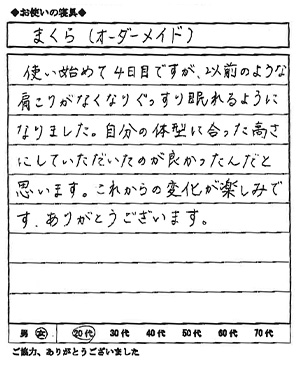 ◆お使いの寝具◆
まくら(オーダーメイド)
使い始めて4日目ですが、以前のような
肩こりがなくなりぐっすり眠れるように
なりました。自分の体型に合った高さ
にしていただいたのが良かったんだと
思います。これからの変化が楽しみで
す。ありがとうございます。
男 女 20代 30代 40代 50代 60代 70代
ご協力、ありがとうございました